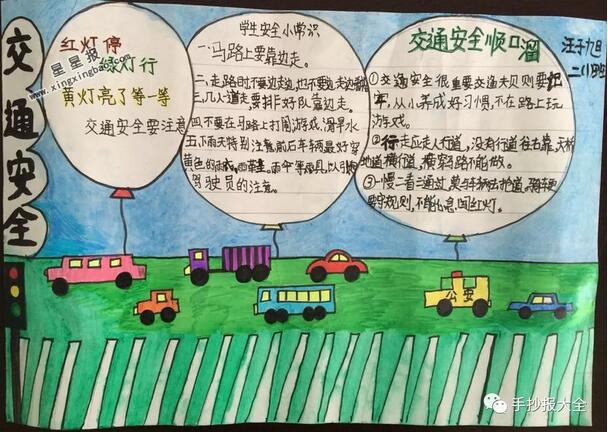 交通安全
星星报
www.xingxingbao.com
红灯停
绿灯行
黄灯亮了等一等
交通安全要注意
学生安全小常识
一、马路上要靠边走。
二、走路时不要边走边
三、几人道走要排好队靠边走。
四、不要在马路上打闹游戏、滑旱冰
五、下雨天特别注意前后车辆最好穿
黄色的雨衣、雨等雨具以引
驾驶员的注意。
交通安全顺口溜
二
①交通安全很重要交通规则要记
牢,从小养成好习惯,不在路上玩
游戏。
②行走应走人行道,没有行道往右靠,天桥
地道横行道,横穿马路不能做。
③一慢二看三通过,莫与车辆去抢道,
规则,不能心急闯红灯。
公安
手抄报大全